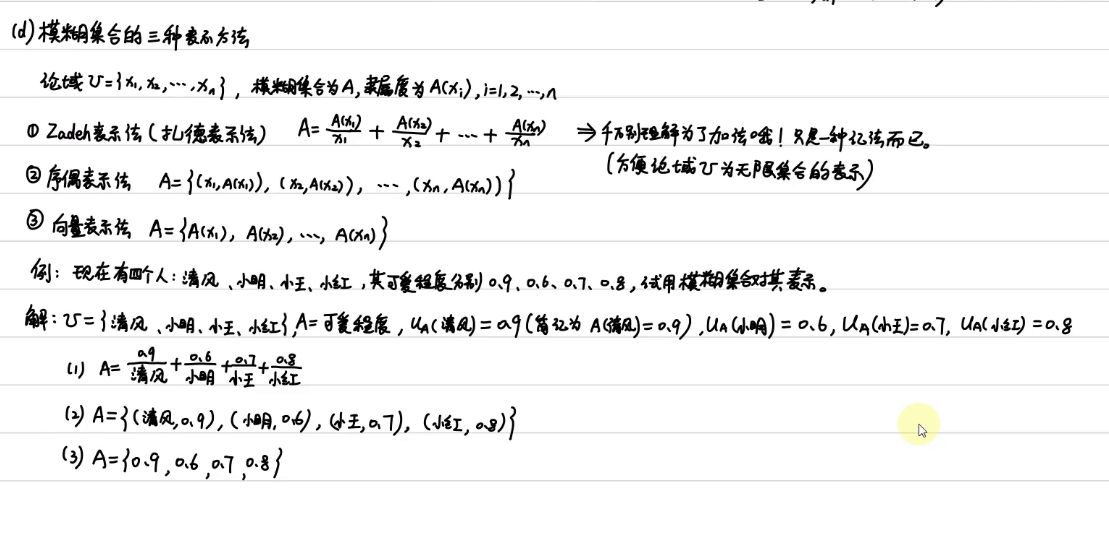 (d) 模糊集合的三种表示方法
论域 U={x₁, x₂, ⋯, xₙ}, 模糊集合为A, 隶属度为A(xᵢ), i=1,2,⋯,n
① Zadeh表示法 (扎德表示法) A= A(x₁)/x₁ + A(x₂)/x₂ + ⋯ + A(xₙ)/xₙ ⇒ 千万别理解为了加法哦! 只是一种记法而已。
(方便论域U为无限集合的表示)
② 序偶表示法 A={(x₁,A(x₁)), (x₂,A(x₂)), ⋯, (xₙ, A(xₙ))}
③ 向量表示法 A={A(x₁), A(x₂), ⋯, A(xₙ)}
例: 现在有四个人: 清风、小明、小王、小红, 其可爱程度分别0.9、0.6、0.7、0.8, 试用模糊集合对其表示。
解: U={清风、小明、小王、小红}, A=可爱程度, U_A(清风)=0.9(简记为 A(清风)=0.9), U_A(小明)=0.6, U_A(小王)=0.7, U_A(小红)=0.8
(1) A= 0.9/清风 + 0.6/小明 + 0.7/小王 + 0.8/小红
(2) A={(清风,0.9), (小明,0.6), (小王,0.7), (小红,0.8)}
(3) A={0.9, 0.6, 0.7, 0.8}